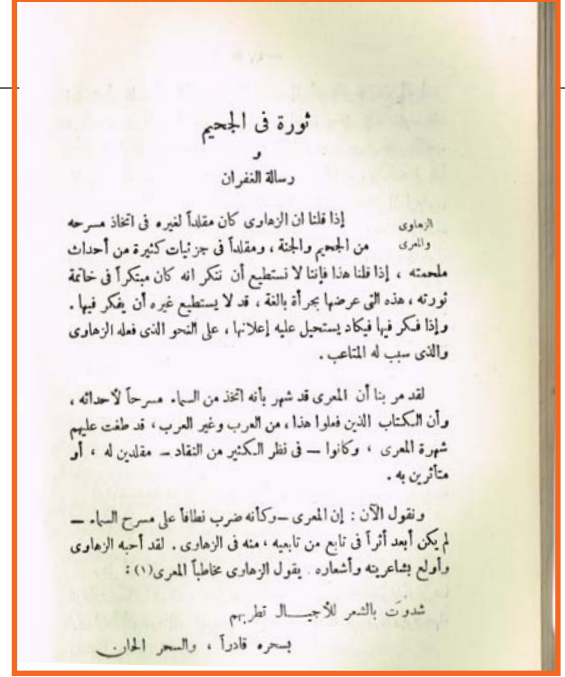 ثورة فى الجحيم
و
رسالة الغفران
الزهاوى
والمعرى
إذا قلنا ان الزهاوى كان مقلداً لغيره فى اتخاذ مسرحه
من الجحيم والجنة ، ومقلداً فى جزئيات كثيرة من أحداث
ملحمته ، إذا قلنا هذا فإننا لا نستطيع أن ننكر انه كان مبتكراً فى خاتمة
ثورته ، هذه التى عرضها بجرأة بالغة ، قد لا يستطيع غيره أن يفكر فيها .
وإذا فكر فيها فيكاد يستحيل عليه إعلانها ، على النحو الذى فعله الزهاوى
والذى سبب له المتاعب .
لقد مر بنا أن المعرى قد شهر بأنه اتخذ من السماء مسرحاً لأحداثه ،
وأن الكتاب الذين فعلوا هذا ، من العرب وغير العرب ، قد طغت عليهم
شهرة المعرى ، وكانوا — فى نظر الكثير من النقاد — مقلدين له ، أو
متأثرين به .
ونقول الآن : إن المعرى —وكأنه ضرب نطاقاً على مسرح السماء —
لم يكن أبعد أثراً فى تابع من تابعيه ، منه فى الزهاوى . لقد أحبه الزهاوى
وأولع بشاعريته وأشعاره . يقول الزهاوى مخاطباً المعرى(١) :
شدوتَ بالشعر للأجيـــال تطربهم
بسحره قادراً ، والسحر الحان